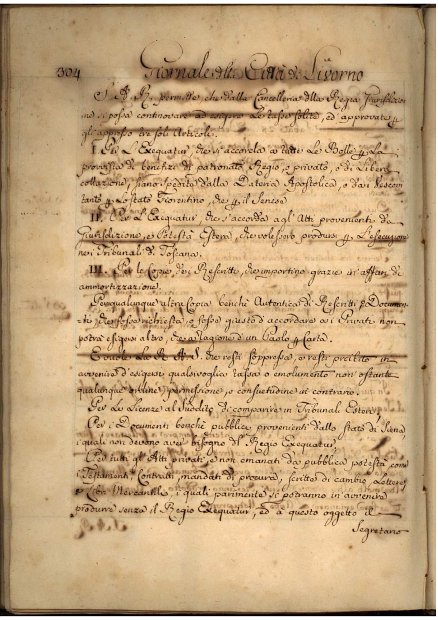 304 Giornale della Città di Livorno
S. A. R. permette, che dalla Cancelleria della Regia Giurisdizione
si possa continovare ad esigere le tasse solite, ed approvate p.
gli appresso tre soli Articoli.
I. Per L'Exequatur, che si accorda a tutte Le Bolle p. La
provvista di benefizi di patronato Regio, o privato, o di Libera
collazione, siano spedite dalla Dateria Apostolica, o dai Vescovi
tanto p. Lo stato Fiorentino, che p. il Senese
II. Per L'Exequatur, che s'accorda agl'Atti provenienti da
Giurisdizione, e Potestà Estera, che volessero prodursi p. L'esecuzione
nei Tribunali di Toscana.
III. Per le Copie dei Rescritti, che importino grazie in affari di
ammortizzazione.
Per qualunque altra Copia benchè Autentica di Rescritti o Documen
ti, che fosse richiesta, e fosse giusto d'accordare ai Privati non
potrà esigersi altro, che a ragione di un Paolo p. Carta.
Vuole La R. A. S. che resti soppressa, e resti proibito in
avvenire d'esigere qualsivoglia tassa o emolumento non ostante
qualunque ordine, permissione, o consuetudine in contrario.
Per Le Licenze ai Sudditi di comparire in Tribunali Esteri,
Per i Documenti benchè pubblici provenienti dallo stato di Siena
i quali non devono aver bisogno del Regio Exequatur,
Per tutti gl'Atti privati, e non emanati da pubblica potestà come
Testamenti, Contratti, mandati di procura, scritte di cambio, Lettere,
e Cose Mercantili, i quali parimente si potranno in avvenire
produrre senza il Regio Exequatur, ed a questo oggetto il
Segretario